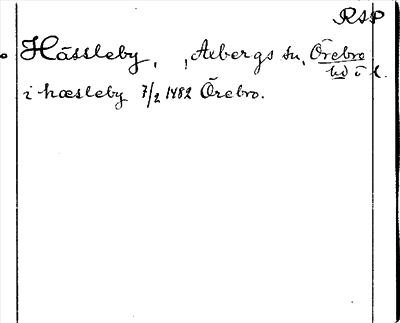 RSP
Hässleby, Axbergs sn, Örebro
hd o. l.
i hæsleby 7/2 1482 Örebro.